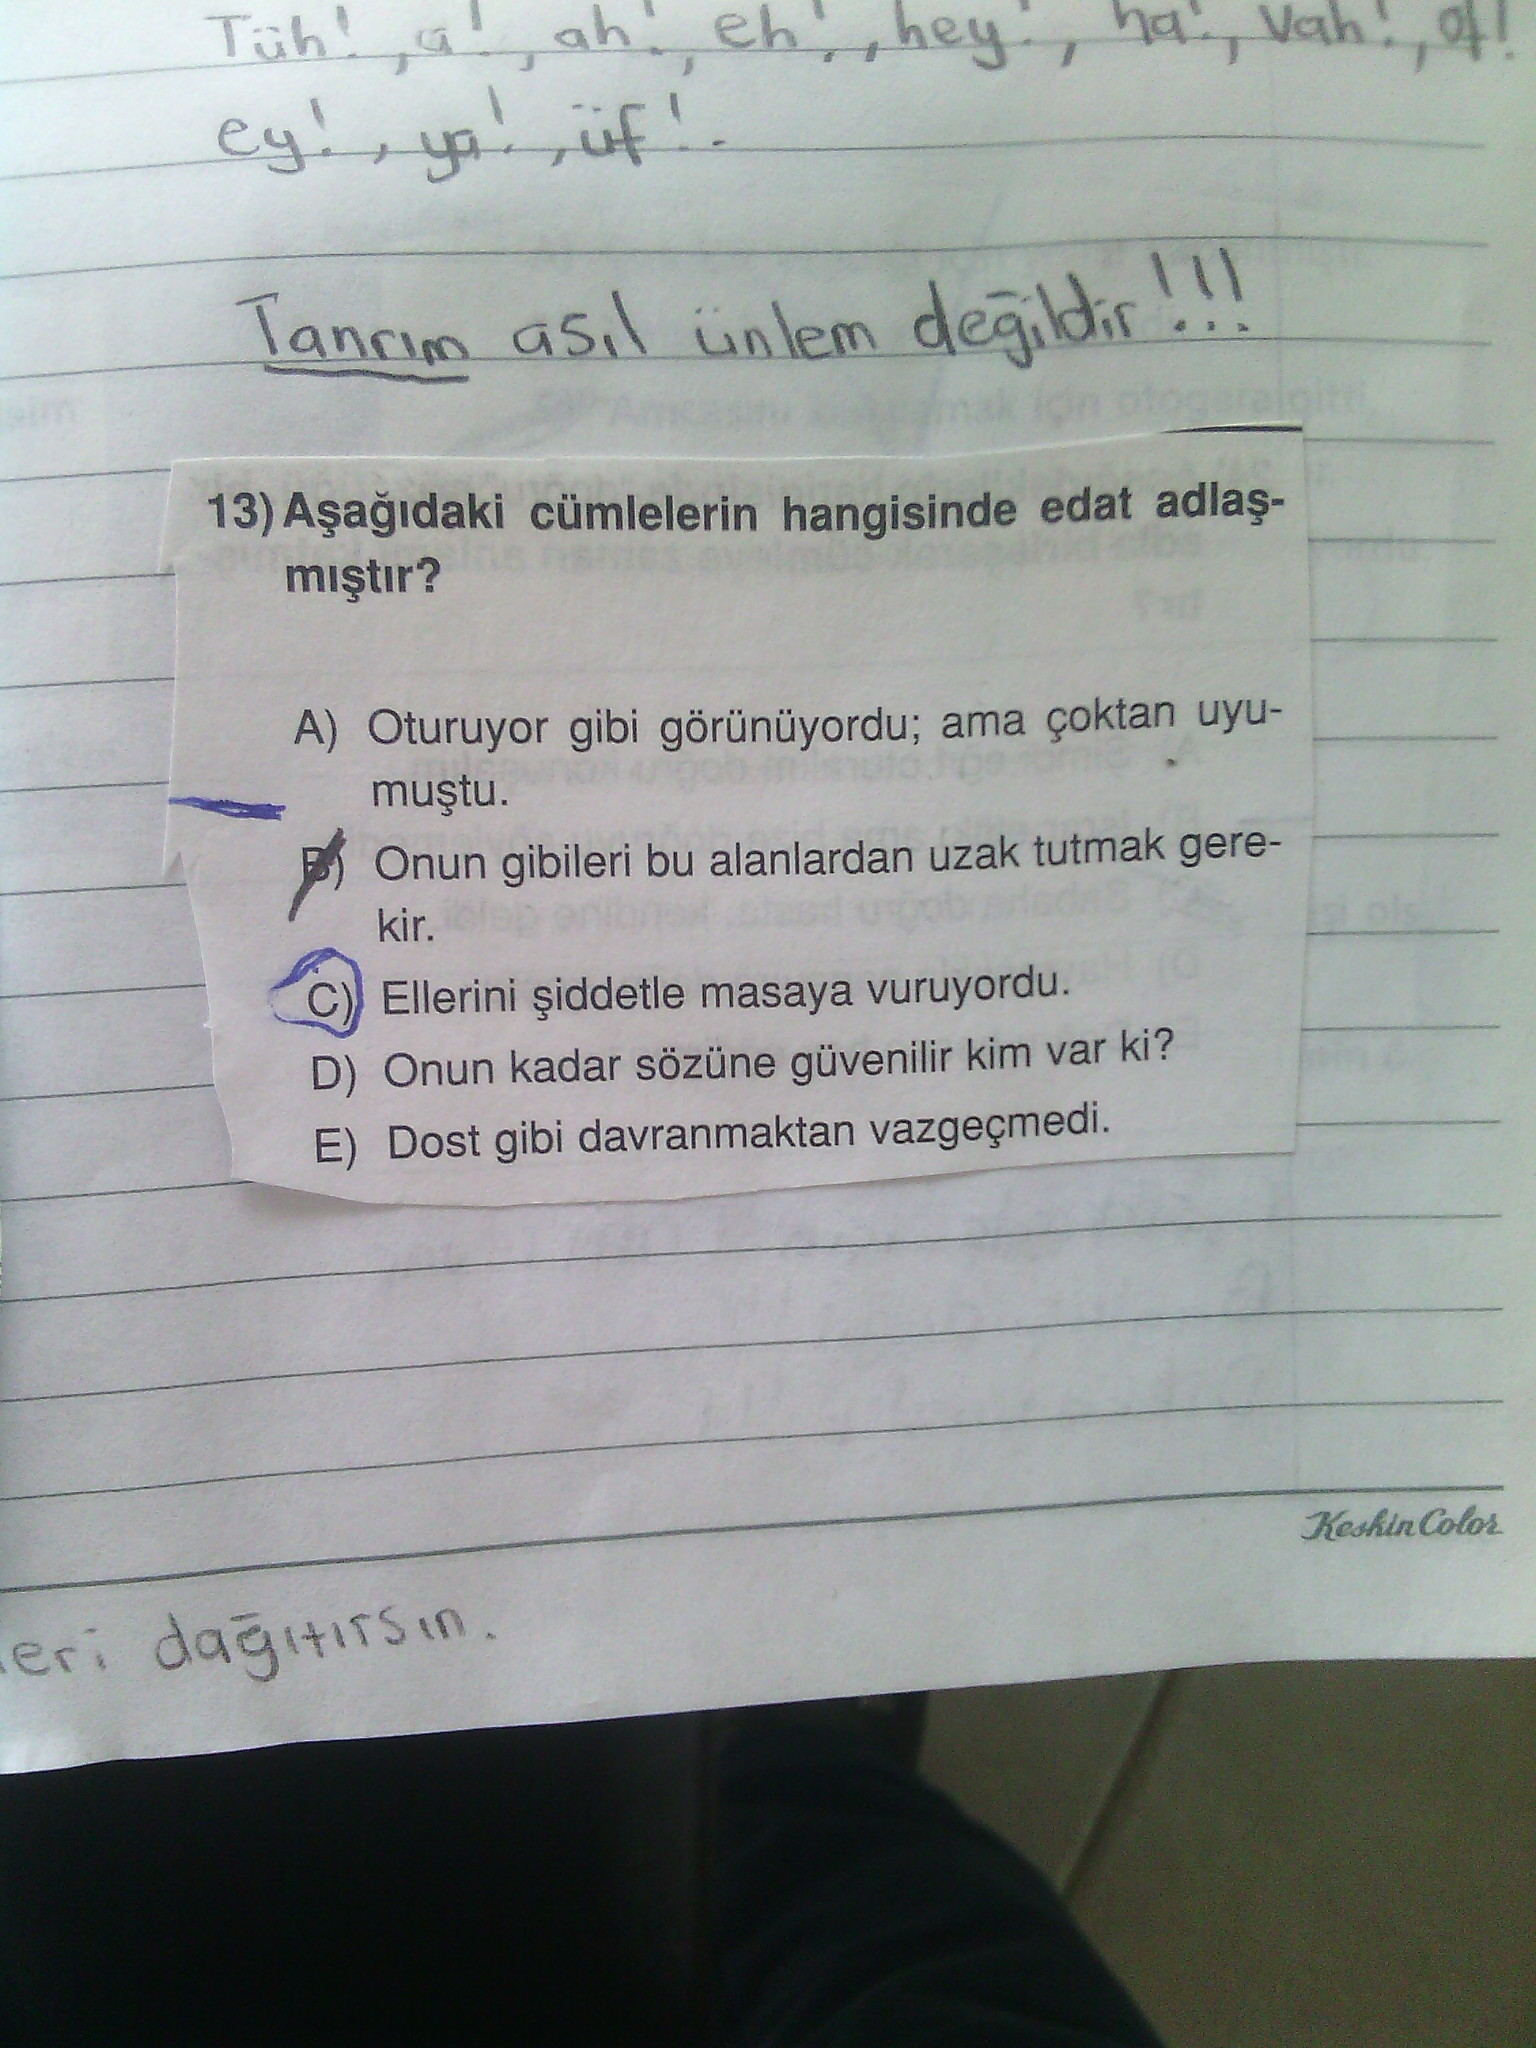 Tüh!, a!, ah!, eh!, hey!, ha!, vah!, of!
ey!, ya!, üf!.
Tanrım asıl ünlem değildir!!!
13) Aşağıdaki cümlelerin hangisinde edat adlaş-
mıştır?
A) Oturuyor gibi görünüyordu; ama çoktan uyu-
muştu.
B) Onun gibileri bu alanlardan uzak tutmak gere-
kir.
C) Ellerini şiddetle masaya vuruyordu.
D) Onun kadar sözüne güvenilir kim var ki?
E) Dost gibi davranmaktan vazgeçmedi.
Keskin Color
leri dağıtırsın.